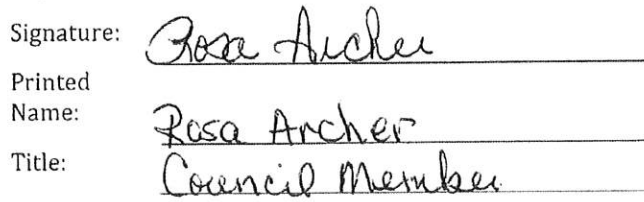 Signature: Rosa Archer
Printed
Name: Rosa Archer
Title: Council Member